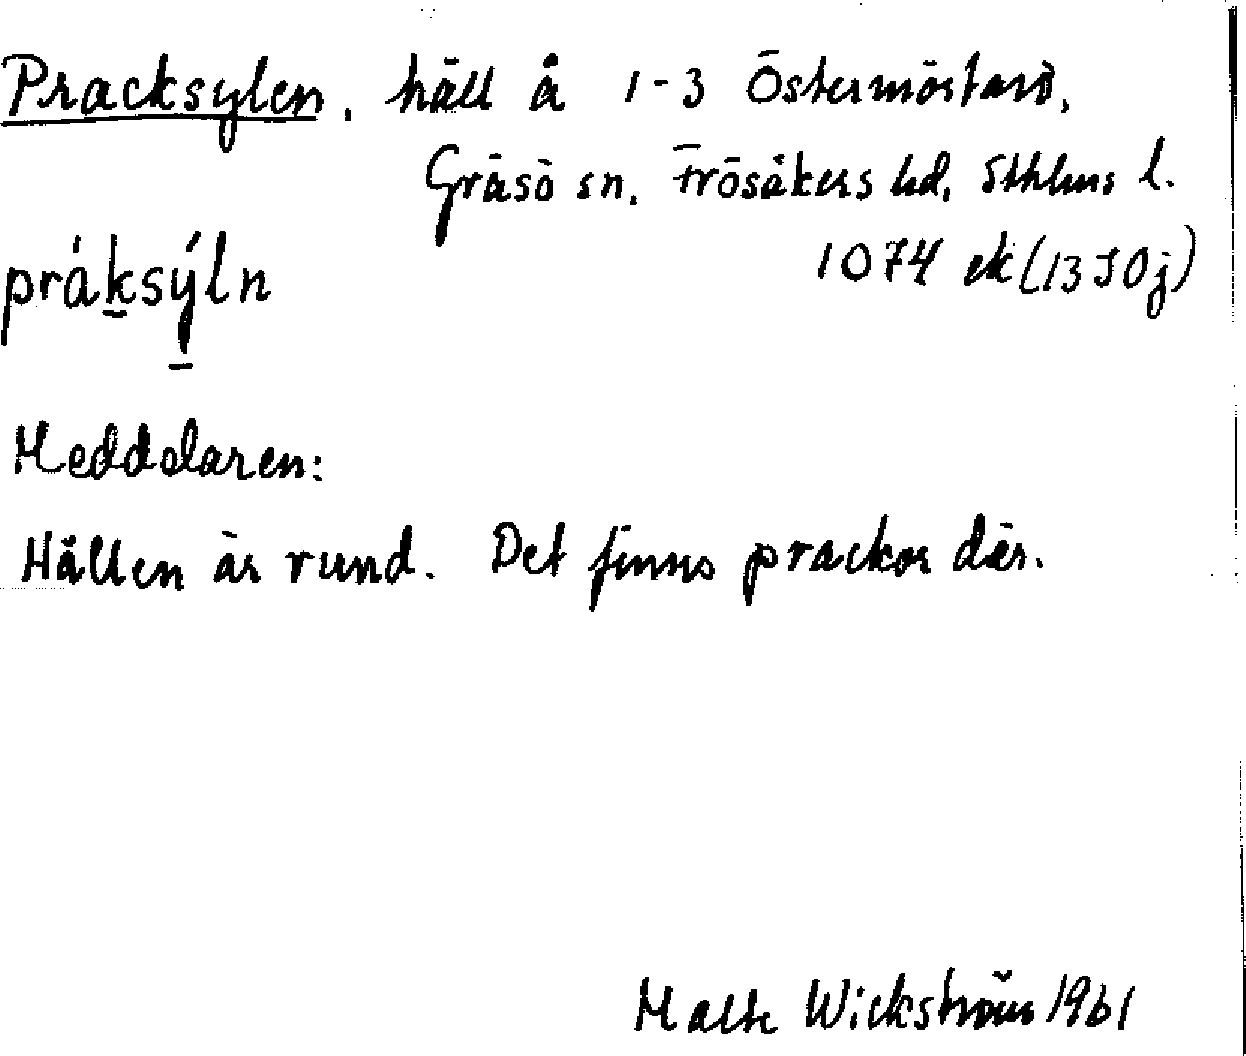 Pracksylen, häll å 1-3 Östermörtarö,
Gräsö sn, Frösåkers hd, Sthlms l.
práksýln
1074 ek (13I0j)
Meddelaren:
Hällen är rund. Det finns prackor där.
Malte Wickström 1961